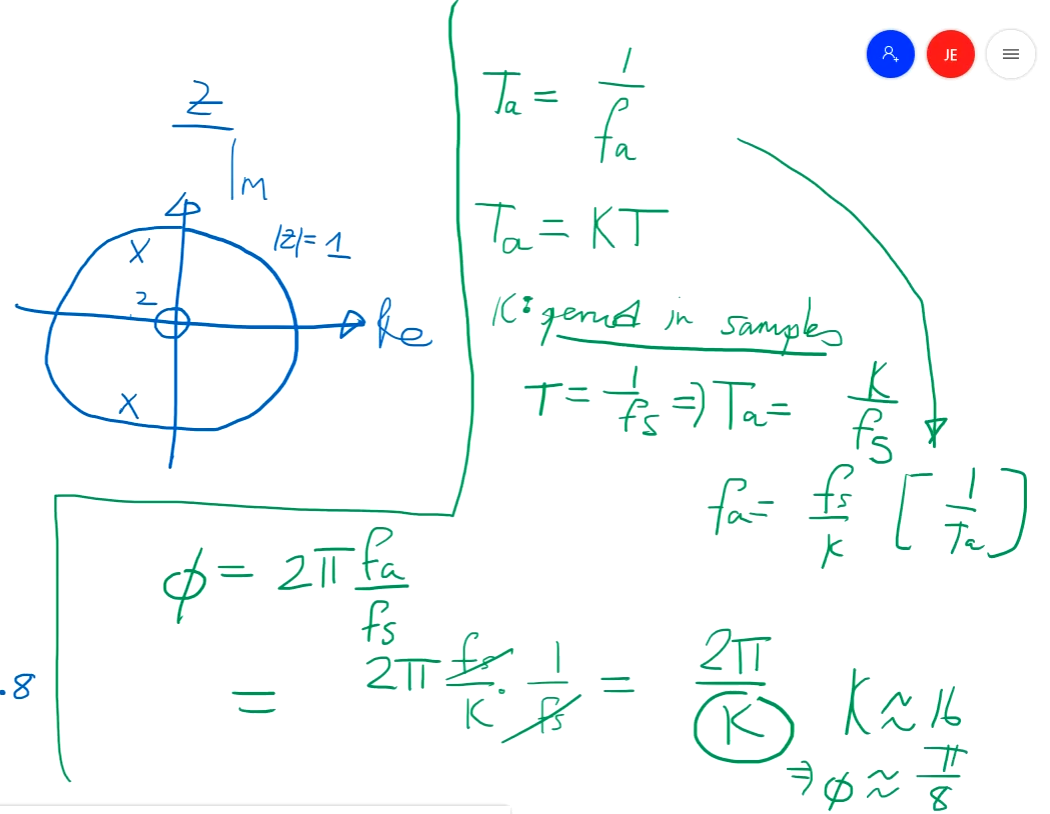 Z
Im
|z|=1
X
2
Re
X
.8
JE
Ta = 1/fa
Ta = KT
K: period in samples
T = 1/fs ⇒ Ta = K/fs
fa = fs/K [1/Ta]
ϕ = 2π fa/fs
= 2π fs/K · 1/fs = 2π/K K ≈ 16
⇒ ϕ ≈ π/8